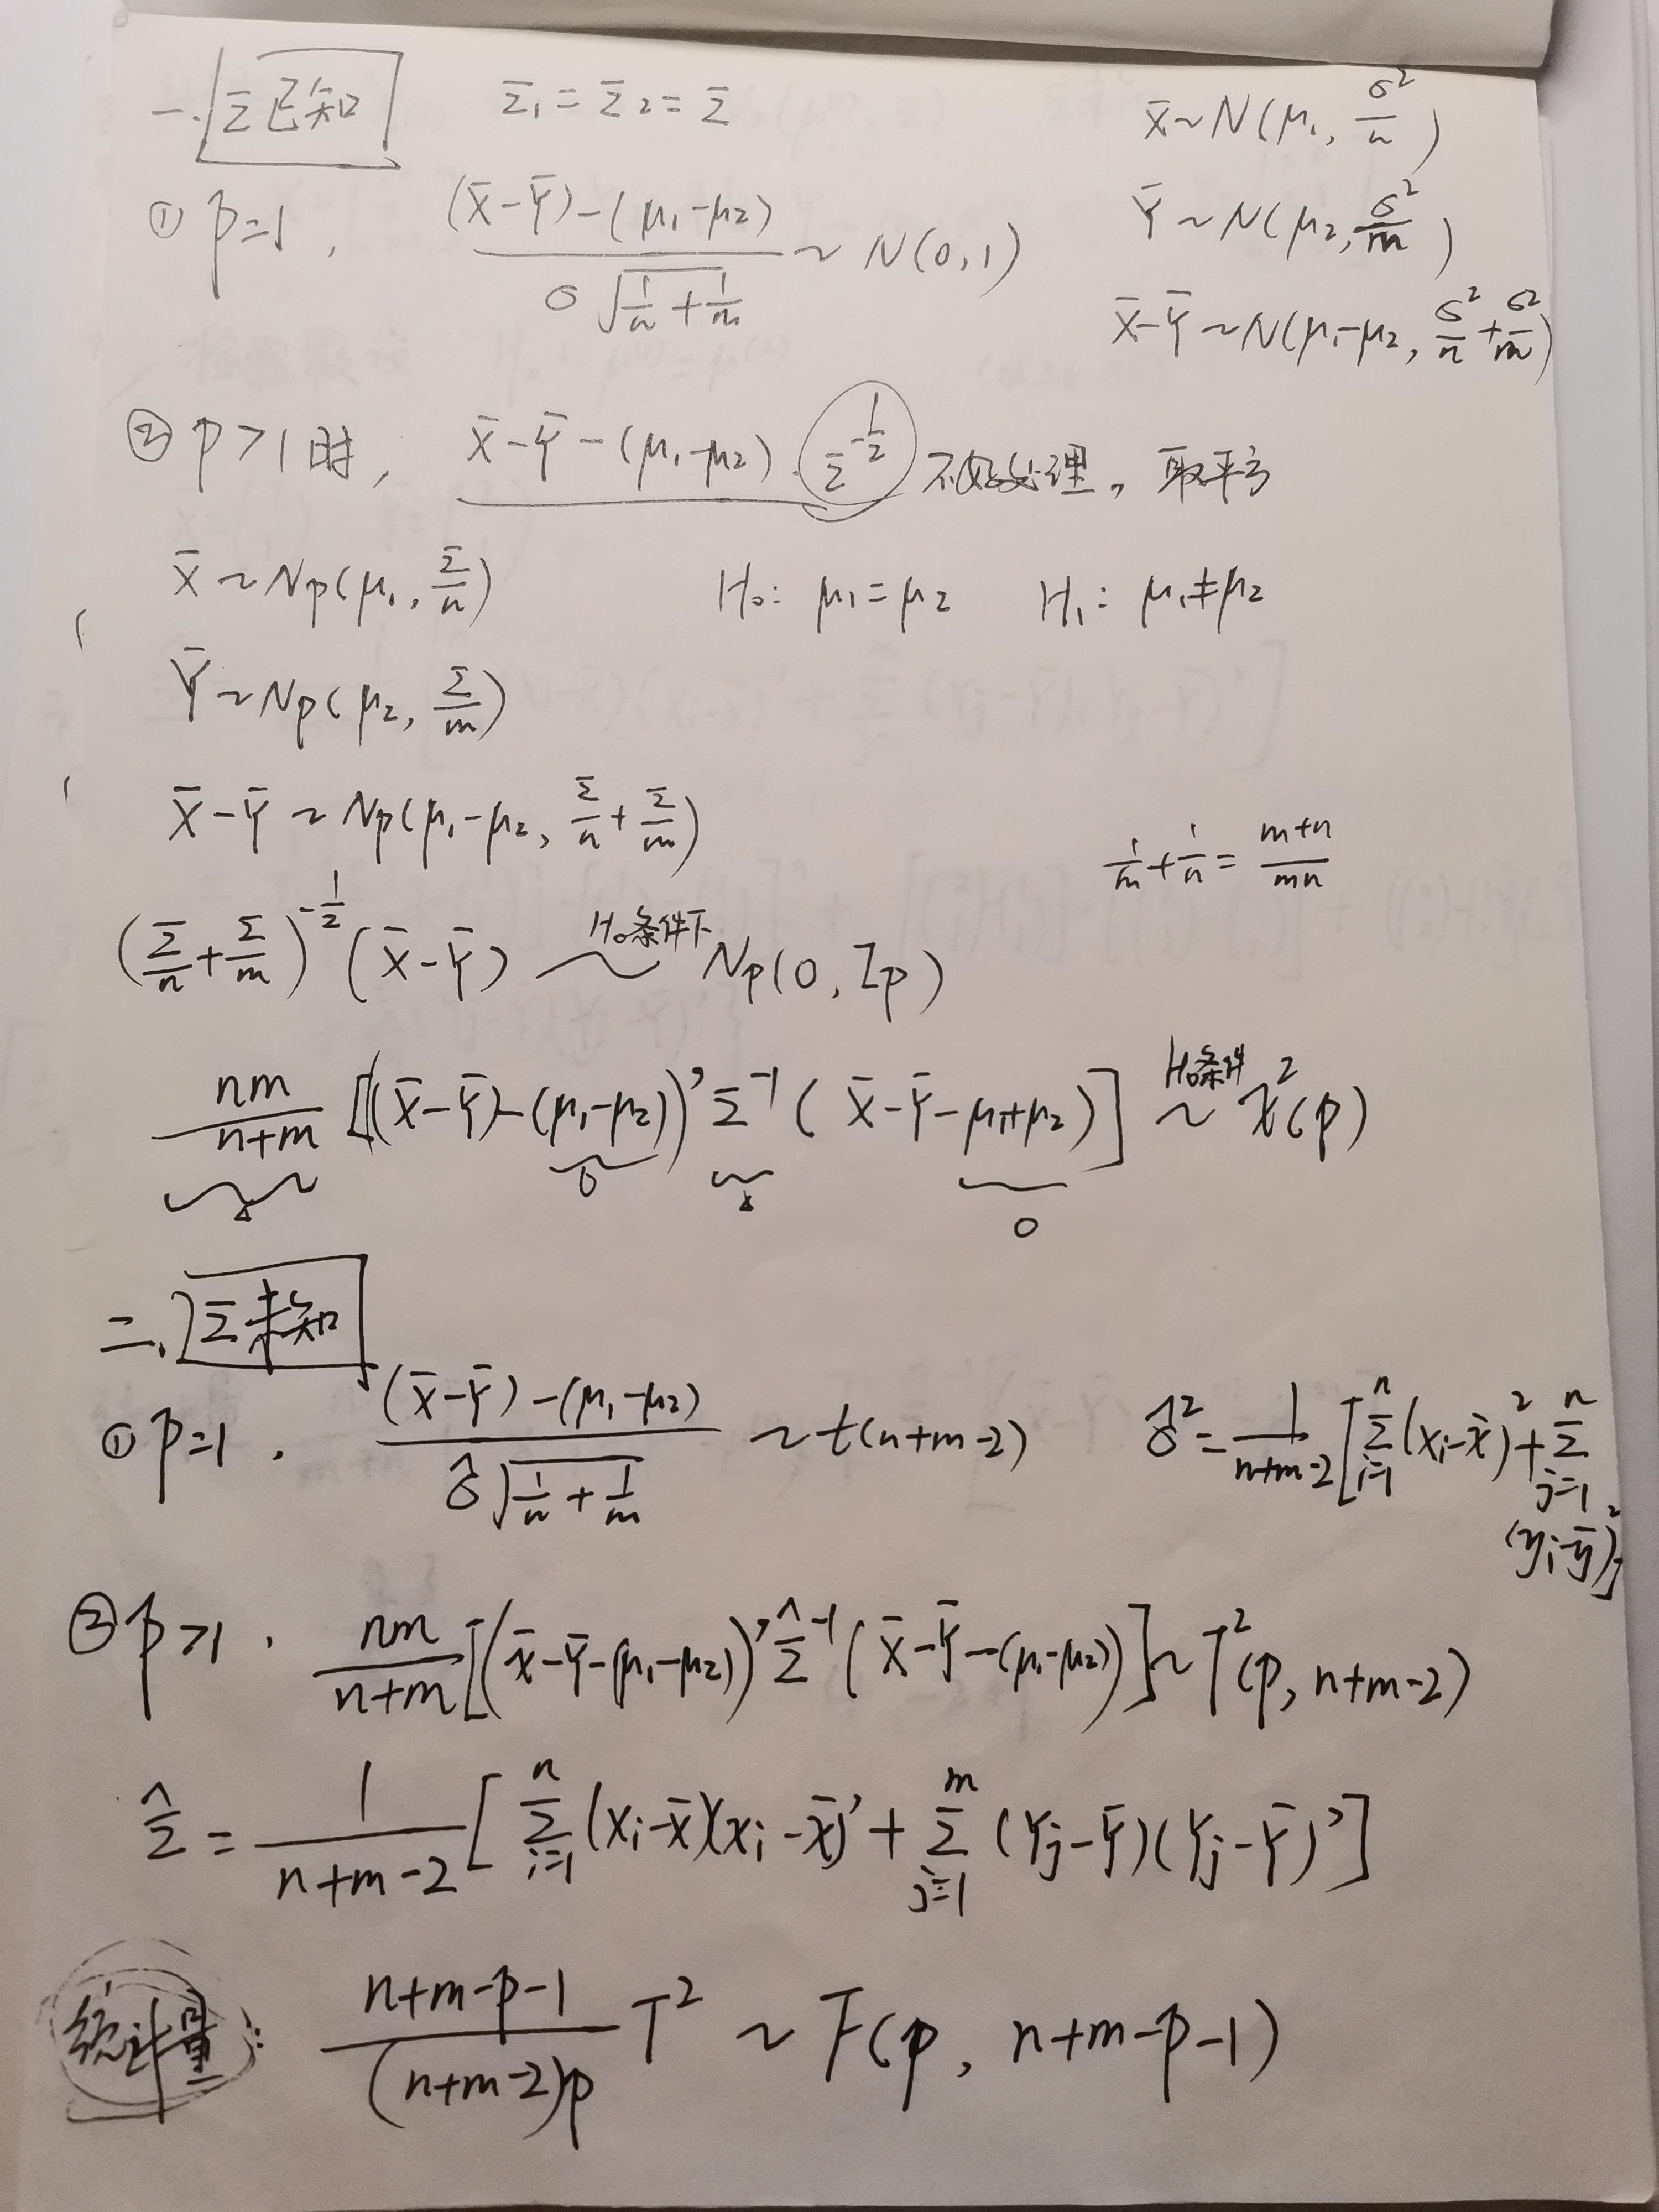 一. Σ已知 Σ₁ = Σ₂ = Σ
X̄ ~ N(μ₁, σ²/n)
① p=1, ((X̄-Ȳ)-(μ₁-μ₂)) / (σ√(1/n + 1/m)) ~ N(0,1)
Ȳ ~ N(μ₂, σ²/m)
X̄-Ȳ ~ N(μ₁-μ₂, σ²/n + σ²/m)
② p>1时, X̄-Ȳ-(μ₁-μ₂)·Σ^(-1/2) 不好处理, 取平方
X̄ ~ Np(μ₁, Σ/n) H₀: μ₁=μ₂ H₁: μ₁≠μ₂
Ȳ ~ Np(μ₂, Σ/m)
X̄-Ȳ ~ Np(μ₁-μ₂, Σ/n + Σ/m)
1/m + 1/n = (m+n)/(mn)
(Σ/n + Σ/m)^(-1/2) (X̄-Ȳ) ~ H₀条件下 Np(0, Ip)
nm/(n+m) [((X̄-Ȳ)-(μ₁-μ₂))' Σ⁻¹ (X̄-Ȳ-μ₁+μ₂)] ~ H₀条件 χ²(p)
0 0
二. Σ未知
① p=1. ((X̄-Ȳ)-(μ₁-μ₂)) / (σ̂√(1/n + 1/m)) ~ t(n+m-2) σ̂² = 1/(n+m-2) [Σ_{i=1}^{n} (xi-x̄)² + Σ_{j=1}^{n}
(yi-ȳ)²]
② p>1. nm/(n+m) [(X̄-Ȳ-(μ₁-μ₂))' Σ̂⁻¹ (X̄-Ȳ-(μ₁-μ₂))] ~ T²(p, n+m-2)
Σ̂ = 1/(n+m-2) [Σ_{i=1}^{n} (Xi-X̄)(Xi-X̄)' + Σ_{j=1}^{m} (Yj-Ȳ)(Yj-Ȳ)']
统计量: (n+m-p-1)/((n+m-2)p) T² ~ F(p, n+m-p-1)